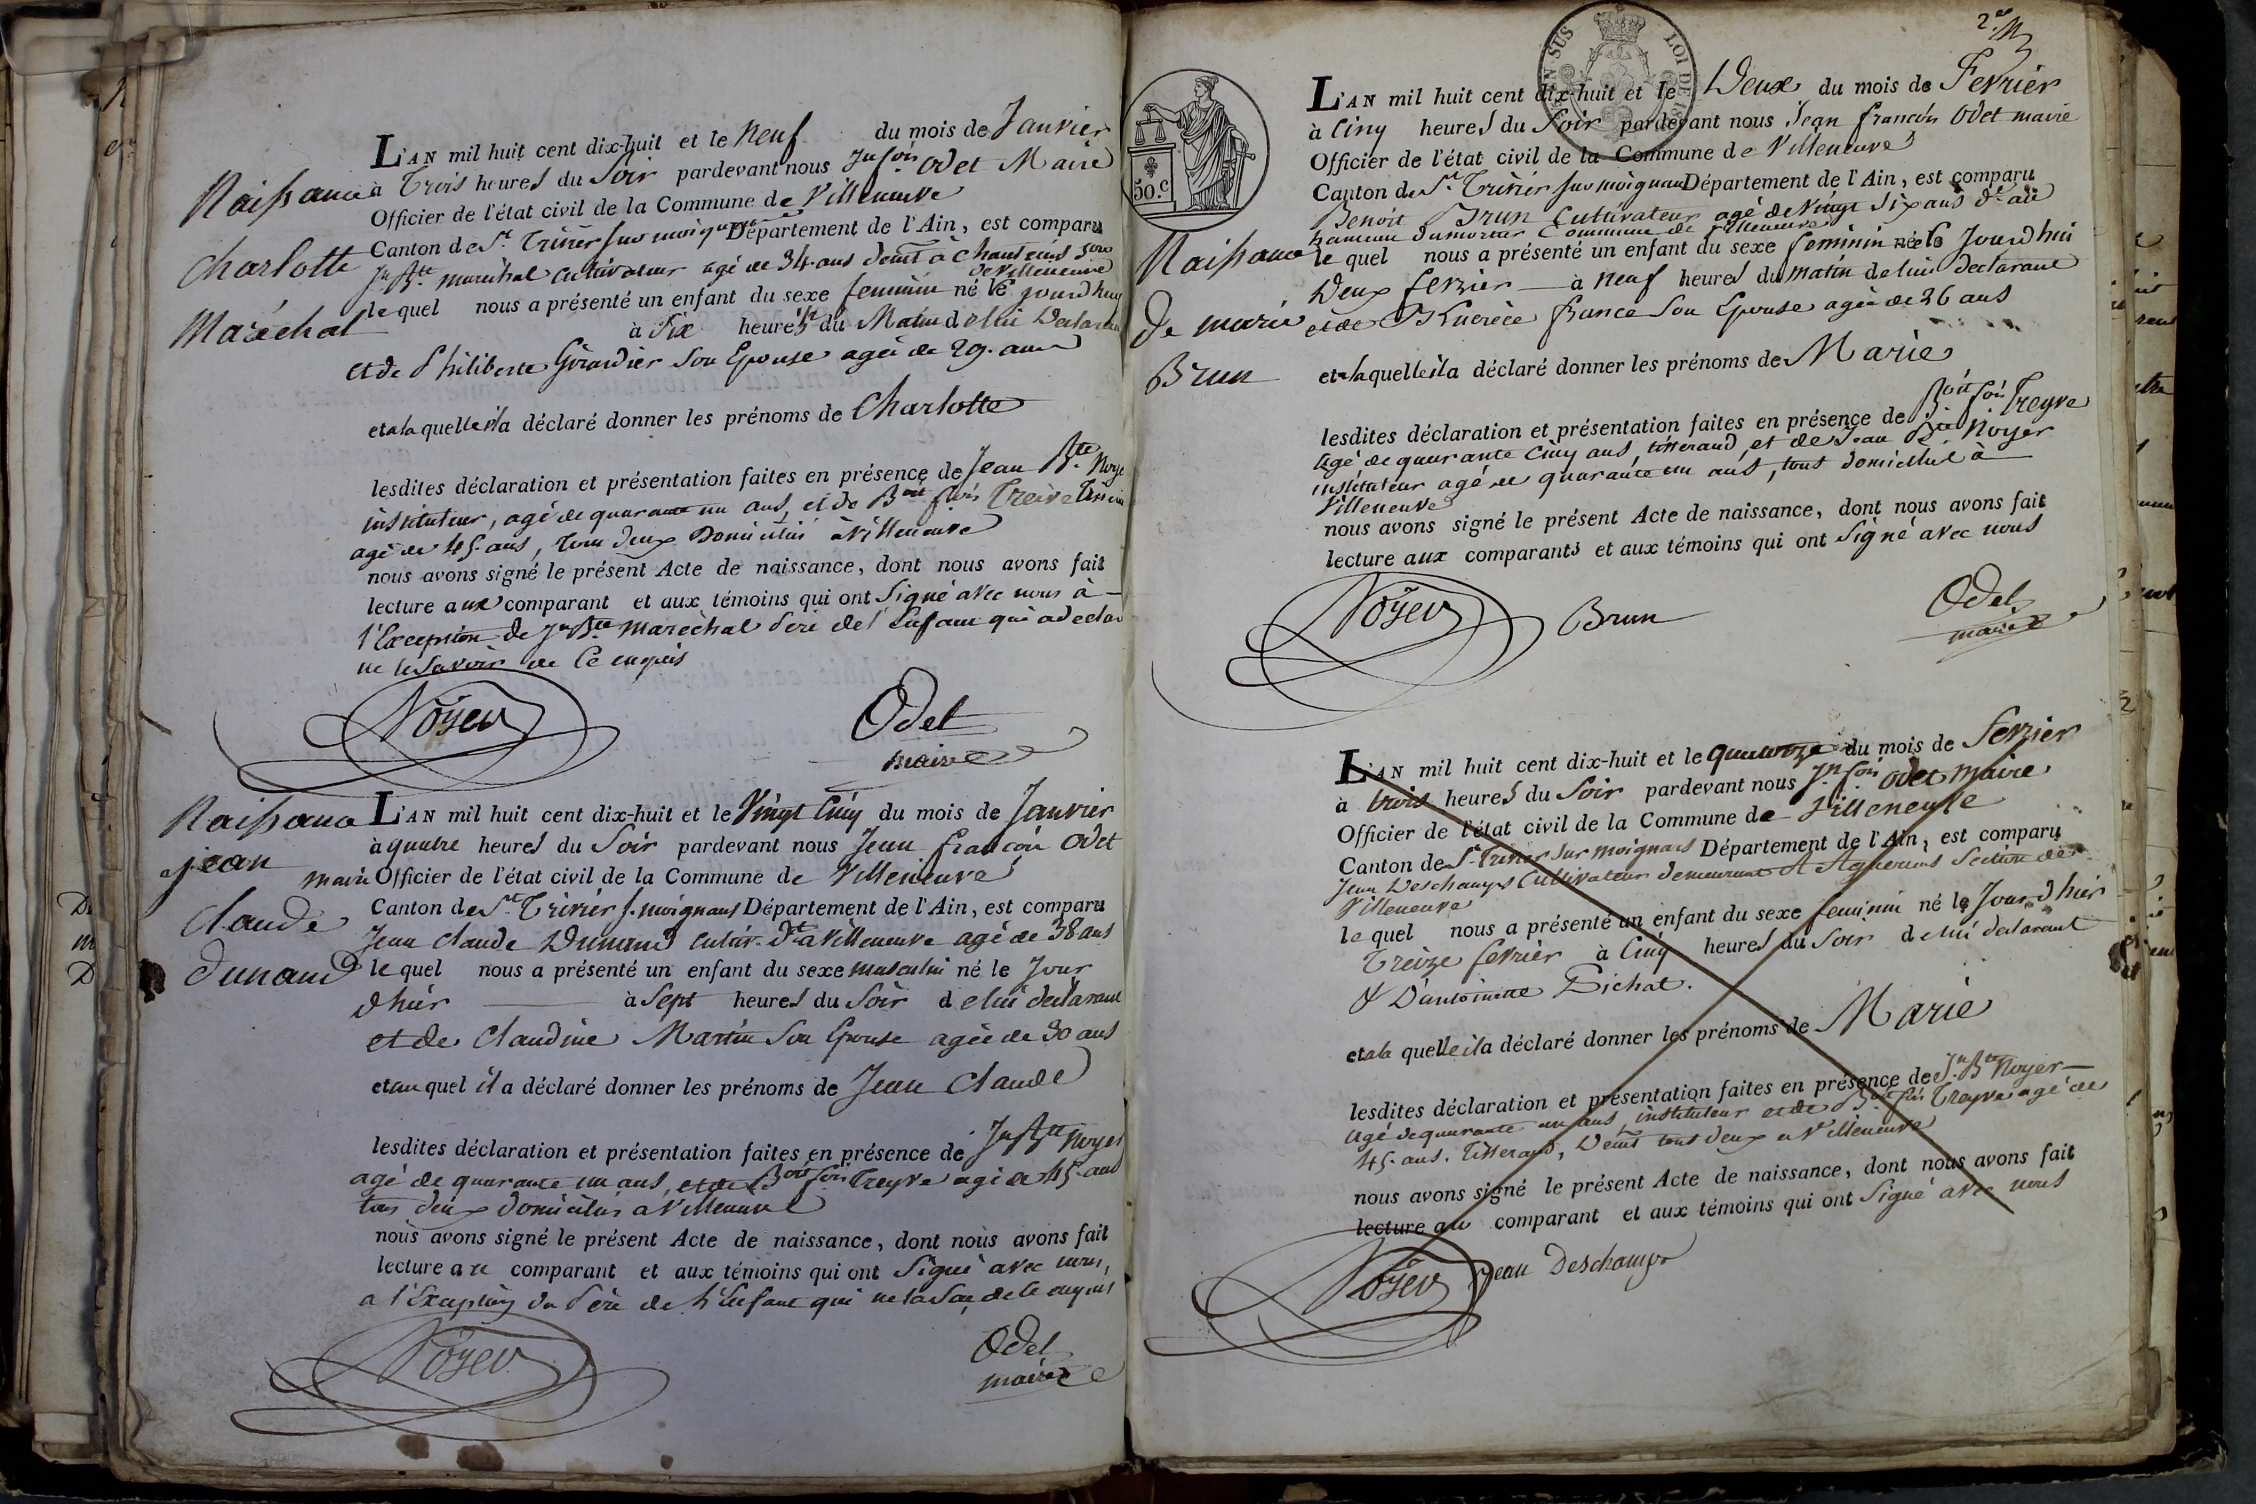 L'AN mil huit cent dix-huit et le neuf du mois de Janvier
à Trois heures du Soir pardevant nous Jn fois Odet Maire
Officier de l'état civil de la Commune de Villeneuve
Canton de St. Trivier sur moignans Département de l'Ain, est comparu
Jn Bte. maréchal cultivateur agé de 34 ans demt à chanteins
de Villeneuve
lequel nous a présenté un enfant du sexe feminin né le jourdhuy
à Six heures du Matin de lui Declarant
et de Philiberte Girardier Son Epouse agée de 29. ans
et a la quelle il a déclaré donner les prénoms de Charlotte
lesdites déclaration et présentation faites en présence de Jean Bte. Noye
instituteur, agé de quarante un ans, et de Boit fois Treive
agé de 45 ans, tous deux Domiciliés à Villeneuve
nous avons signé le présent Acte de naissance, dont nous avons fait
lecture aux comparant et aux témoins qui ont Signé avec nous à
l'Exception de Jn Bte maréchal Pere de l'Enfant qui a declar
ne le Savoir de Ce enquis
Noyer
Odet
maire
Naissance
Charlotte
Maréchal
L'AN mil huit cent dix-huit et le Vingt Cinq du mois de Janvier
à quatre heures du Soir pardevant nous Jean françois Odet
maire Officier de l'état civil de la Commune de Villeneuve
Canton de St. Trivier s. moignans Département de l'Ain, est comparu
Jean Claude Dunand cultivr. Dt. à Villeneuve agé de 38 ans
lequel nous a présenté un enfant du sexe masculin né le Jour
d'huis à Sept heures du Soir de lui declarant
et de Claudine Martin Son Epouse agée de 30 ans
et au quel il a déclaré donner les prénoms de Jean Claude
lesdites déclaration et présentation faites en présence de Jn Bte Noyer
agé de quarante un ans, et de Boit fois Treyve agé de 45 ans
tous deux domiciliés a Villeneuve
nous avons signé le présent Acte de naissance, dont nous avons fait
lecture au comparant et aux témoins qui ont Signé avec nous,
a l'Exception du Pere de l'Enfant qui ne la Sçu de Ce enquis
Noyer
Odet
maire
Naissance
jean
Claude
dunand
2e
50.c
TIMBRE EN SUS
LOI DE 18
L'AN mil huit cent dix-huit et le Deux du mois de Fevrier
à Cinq heures du Soir pardevant nous Jean françois Odet maire
Officier de l'état civil de la Commune de Villeneuve
Canton de St. Trivier sur moignans Département de l'Ain, est comparu
Benoit Brun Cultivateur agé de vingt Six ans dt. au
hameau dumortier Commune de Villeneuve
lequel nous a présenté un enfant du sexe feminin née le Jourdhui
Deux fevrier à neuf heures du matin de lui declarant
et de Lucrèce france Son Epouse agée de 26 ans
et a laquelle il a déclaré donner les prénoms de Marie
lesdites déclaration et présentation faites en présence de Boit fois Treyve
agé de quarante Cinq ans, tisserand, et de Jean Bte Noyer
instituteur agé de quarante un ans, tous domicilié à
Villeneuve
nous avons signé le présent Acte de naissance, dont nous avons fait
lecture aux comparants et aux témoins qui ont Signé avec nous
Noyer
Brun
Odet
maire
Naissance
de marie
Brun
L'AN mil huit cent dix-huit et le quatorze du mois de fevrier
à trois heures du Soir pardevant nous Jn fois Odet maire
Officier de l'état civil de la Commune de Villeneuve
Canton de St. Trivier sur moignans Département de l'Ain, est comparu
Jean Deschamps Cultivateur demeurant A Agnereins Section de
Villeneuve
lequel nous a présenté un enfant du sexe feminin né le Jourdhuis
Treize fevrier à Cinq heures du Soir de lui declarant
& D'antoinette Pichat.
et a la quelle il a déclaré donner les prénoms de Marie
lesdites déclaration et présentation faites en présence de Jn Bte Noyer
agé de quarante un ans instituteur et de Boit fois Treyve agé de
45 ans. Tisserand, Demt tous deux a Villeneuve
nous avons signé le présent Acte de naissance, dont nous avons fait
lecture au comparant et aux témoins qui ont Signé avec nous
Noyer
jean Deschamps